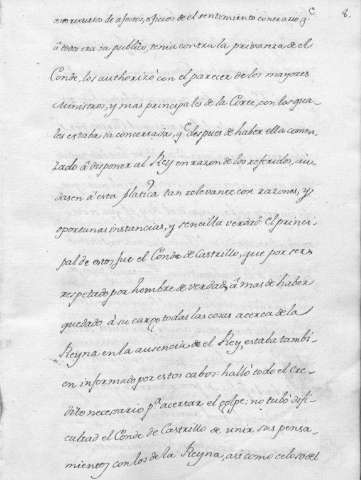 8.
de afectos, oficios de el sentimiento comun q.e
â todos era ia publico, tenia contra la privanza de el
Conde, los authorizó con el parecer de los mayores
Ministros, y mas principales de la Corte, con los qua-
les estaba ia concertada, q.e despues de haber ella comen-
zado â disponer al Rey en razon de los referidos, aiu-
dasen â esta platica tan relevante con razones, y
oportunas instancias, y sencilla verdad el princi-
pal de estos fue el Conde de Castrillo, que por ser
respetado por hombre de verdad, â mas de haber
quedado â su cargo todas las cosas acerca de la
Reyna en la ausencia de el Rey, estaba tambi-
en informado por estos cabos: halló todo el cre-
dito necesario p.a acertar el golpe; no tubó difi-
cultad el Conde de Castrillo de unir sus pensa-
mientos con los de la Reyna, asi como celoso del